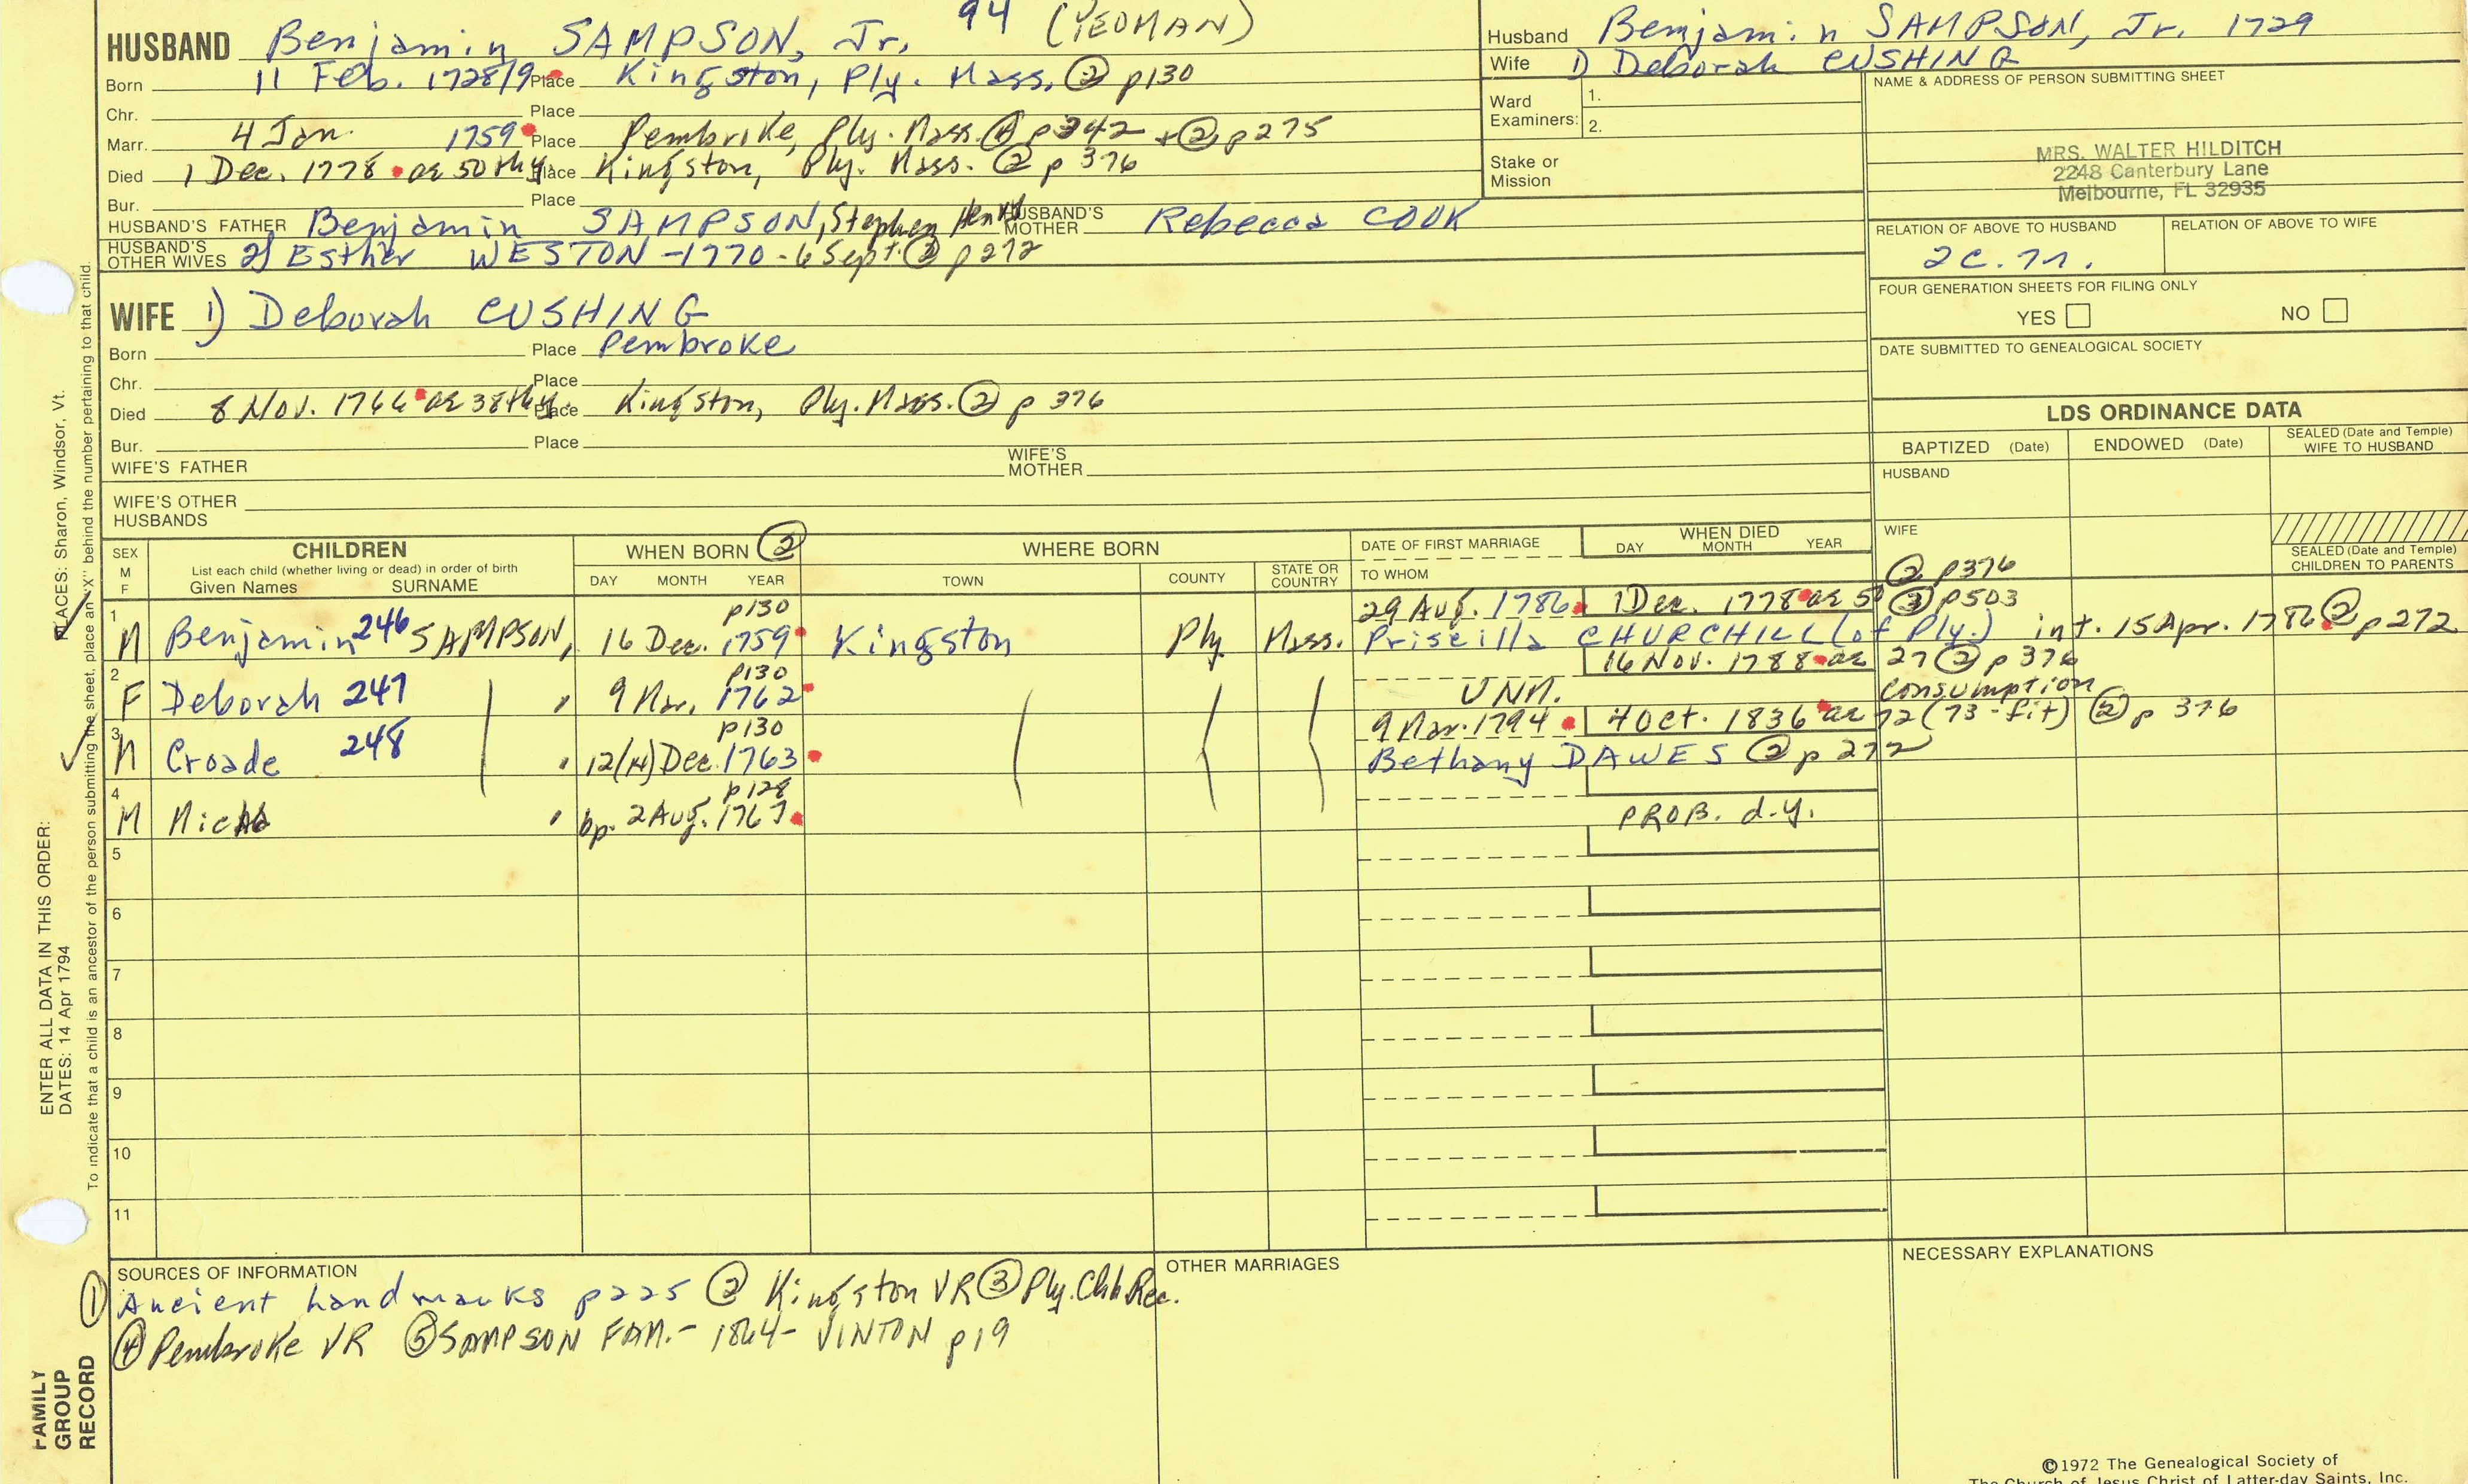 HUSBAND Benjamin SAMPSON, Jr. 94 (YEOMAN)
Born 11 Feb. 1728/9 Place Kingston, Ply. Mass. ② p130
Chr. Place
Marr. 4 Jan. 1759 Place Pembroke, Ply. Mass. ④ p342 + ② p275
Died 1 Dec. 1778 ae 50thy Place Kingston, Ply. Mass. ② p 376
Bur. Place
HUSBAND'S FATHER Benjamin SAMPSON, Stephen, Henry HUSBAND'S MOTHER Rebecca COOK
HUSBAND'S OTHER WIVES 2) Esther WESTON -1770 - 6 Sept. ② p272
WIFE 1) Deborah CUSHING
Born Place Pembroke
Chr. Place
Died 8 Nov. 1766 ae 38thy Place Kingston, Ply. Mass. ② p 376
Bur. Place
WIFE'S FATHER WIFE'S MOTHER
WIFE'S OTHER HUSBANDS
Husband Benjamin SAMPSON, Jr. 1729
Wife 1) Deborah CUSHING
Ward Examiners: 1.
2.
Stake or Mission
NAME & ADDRESS OF PERSON SUBMITTING SHEET
MRS. WALTER HILDITCH
2248 Canterbury Lane
Melbourne, FL 32935
RELATION OF ABOVE TO HUSBAND RELATION OF ABOVE TO WIFE
FOUR GENERATION SHEETS FOR FILING ONLY
YES NO
DATE SUBMITTED TO GENEALOGICAL SOCIETY
LDS ORDINANCE DATA
BAPTIZED (Date) ENDOWED (Date) SEALED (Date and Temple) WIFE TO HUSBAND
HUSBAND
WIFE
SEALED (Date and Temple) CHILDREN TO PARENTS
SEX M F CHILDREN List each child (whether living or dead) in order of birth Given Names SURNAME
WHEN BORN ② DAY MONTH YEAR
WHERE BORN TOWN COUNTY STATE OR COUNTRY
DATE OF FIRST MARRIAGE TO WHOM
WHEN DIED DAY MONTH YEAR
② p376
1 p130 29 Aug. 1786 1 Dec. 1778 ae 50 ③ p503
M Benjamin 246 SAMPSON, 16 Dec. 1759 Kingston Ply. Mass. Priscilla CHURCHILL (of Ply.) int. 15 Apr. 1786 ② p272
2 p130 16 Nov. 1788 ae 27 ② p 376
F Deborah 247 " 9 Mar. 1762 UNM. consumption
3 p130 9 Mar. 1794 4 Oct. 1836 ae 72 (73 - fit) ② p 376
M Croade 248 " 12(14) Dec. 1763 Bethany DAWES ② p 272
4 p128
M Micah " bp. 2 Aug. 1767 PROB. d.y.
5
6
7
8
9
10
11
SOURCES OF INFORMATION
① Ancient Landmarks p225 ② Kingston VR ③ Ply. Chh Rec.
④ Pembroke VR ⑤ SAMPSON FAM. - 1864 - VINTON p19
OTHER MARRIAGES
NECESSARY EXPLANATIONS
©1972 The Genealogical Society of
The Church of Jesus Christ of Latter-day Saints, Inc.
ENTER ALL DATA IN THIS ORDER:
DATES: 14 Apr 1794
PLACES: Sharon, Windsor, Vt.
To indicate that a child is an ancestor of the person submitting the sheet, place an "X" behind the number pertaining to that child.
FAMILY
GROUP
RECORD